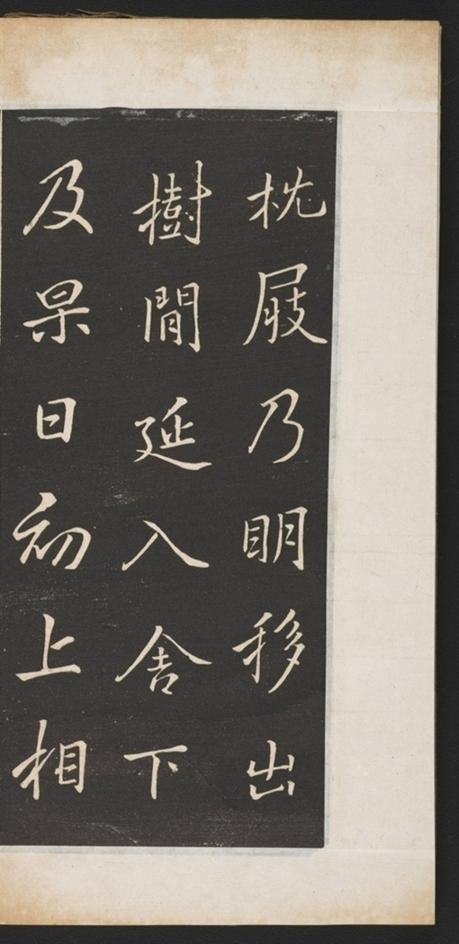 枕屐乃明移出
樹間延入舍下
及杲日初上相